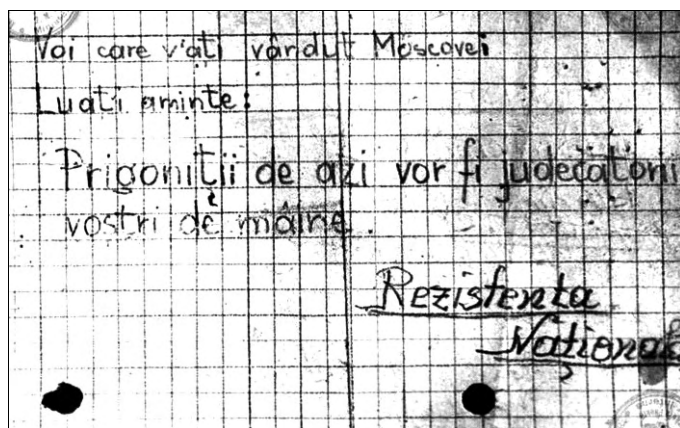 Voi care v'ati vândut Moscovei
Luati aminte:
Prigoniţii de azi vor fi judecatorii
vostri de mâine.
Rezistenta
Naţională